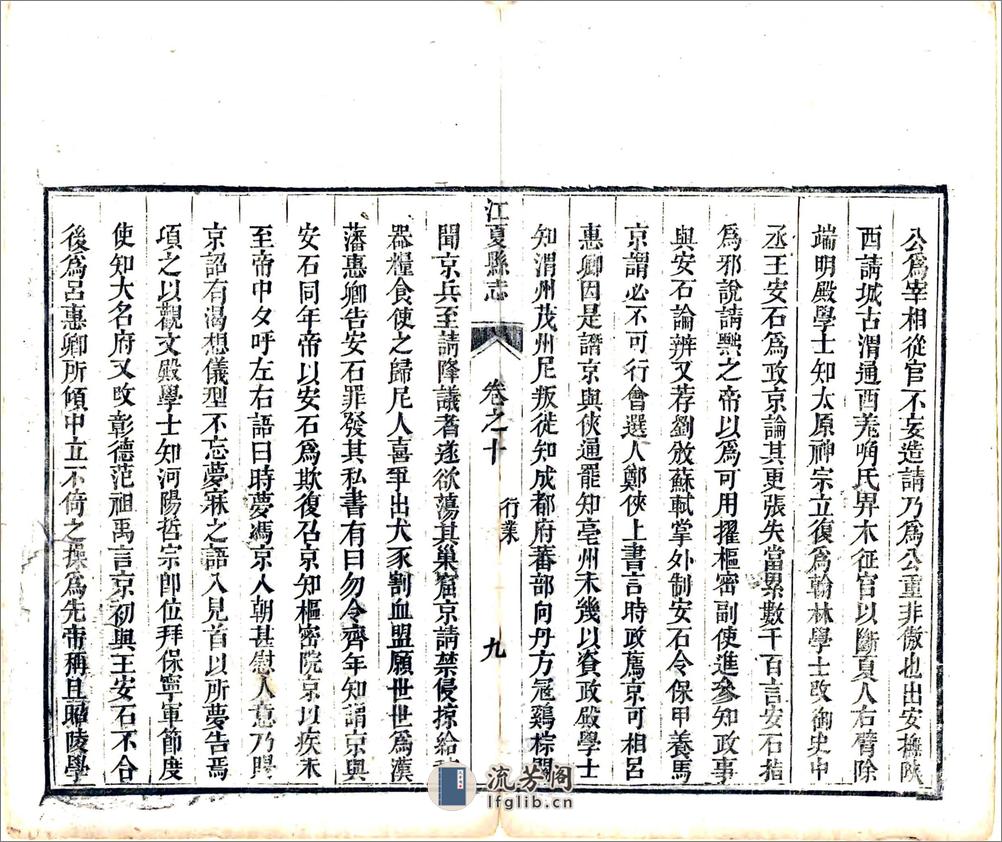 公爲宰相從官不妄造請乃爲公重非傲也出安撫陝
西請城古渭通西羌唃氏畀木征官以斷夏人右臂除
端明殿學士知太原神宗立復爲翰林學士改御史中
丞王安石爲政京論其更張失當累數千百言安石指
爲邪說請黜之帝以爲可用擢樞密副使進參知政事
與安石論辨又荐劉攽蘇軾掌外制安石令保甲養馬
京謂必不可行會選人鄭俠上書言時政薦京可相呂
惠卿因是譖京與俠通罷知亳州未幾以資政殿學士
知渭州茂州尼叛徙知成都府蕃部向丹方冠鷄棕關
江夏縣志
卷之十
行業
九
聞京兵至請降議者遂欲蕩其巢窟京請禁侵掠給
器糧食使之歸尼人喜爭出犬豕割血盟願世世爲漢
藩惠卿告安石罪發其私書有曰勿令齊年知謂京與
安石同年帝以安石爲欺復召京知樞密院京以疾未
至帝中夕呼左右語曰時夢馮京入朝甚慰人意乃賜
京詔有渴想儀型不忘夢寐之語入見首以所夢告焉
頃之以觀文殿學士知河陽哲宗卽位拜保寧軍節度
使知大名府又改彰德范祖禹言京初與王安石不合
後爲呂惠卿所傾中立不倚之操爲先帝稱且昭陵學
流芳阁
lfglib.cn